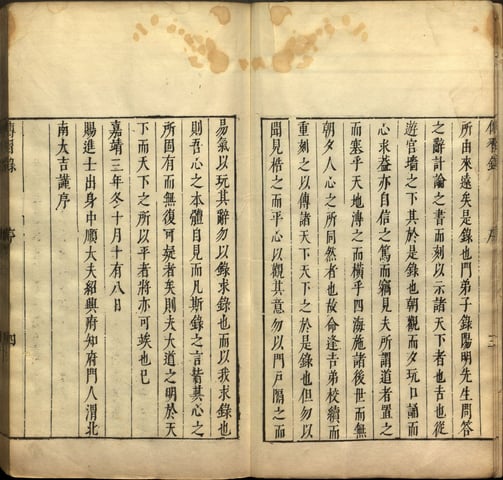 傳習錄
所由來遠矣是錄也門弟子錄陽明先生問答
之辭討論之書而刻以示諸天下者也吉也從
遊宮墻之下其於是錄也朝觀而夕玩口誦而
心求葢亦自信之篤而竊見夫所謂道者置之
而塞乎天地溥之而橫乎四海施諸後世而無
朝夕人心之所同然者也故命逢吉弟校續而
重刻之以傳諸天下天下之於是錄也但勿以
聞見梏之而平心以觀其意勿以門戶隔之而
易氣以玩其辭勿以錄求錄也而以我求錄也
則吾心之本體自見而凡斯錄之言皆其心之
所固有而無復可疑者矣則夫大道之明於天
下而天下之所以平者將亦可竢也已
嘉靖三年冬十月十有八日
賜進士出身中順大夫紹興府知府門人渭北
南大吉謹序
傳習錄 序 四